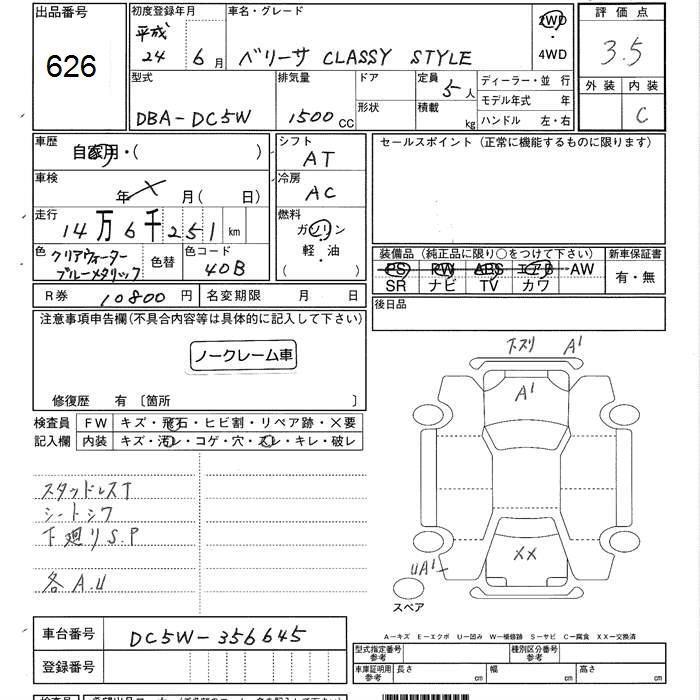 出品番号
626
初度登録年月
平成
24 6月
車名・グレード
ベリーサ CLASSY STYLE
2WD
・
4WD
評価点
3.5
外装 内装
C
型式
DBA-DC5W
排気量
1500CC
ドア
形状
定員
5人
積載
kg
ディーラー・並行
モデル年式 年
ハンドル 左・右
車歴
自家用・( )
車検
年 × 月( 日)
走行
14万6千251km
色
クリアウォーター
ブルーメタリック
色替
色コード
40B
シフト
AT
冷房
AC
燃料
ガソリン
軽・油
( ・ )
セールスポイント (正常に機能するものに限ります)
装備品 (純正品に限り○をつけて下さい)
PS PW ABS エアB AW
SR ナビ TV カワ
新車保証書
有・無
R券 10800円
名変期限 月 日
後日品
注意事項申告欄(不具合内容等は具体的に記入して下さい)
ノークレーム車
修復歴 有 〔箇所 〕
検査員
記入欄
FW キズ・飛石・ヒビ割・リペア跡・×要
内装 キズ・汚レ・コゲ・穴・スレ・キレ・破レ
スタッドレスT
シートシワ
下廻りS.P
各A.U
下スリ A1
A1
XX
UA1
スペア
車台番号
DC5W-356645
登録番号
A－キズ E－エクボ U－凹み W－補修跡 S－サビ C－腐食 XX－交換済
型式指定番号
参考
種別区分番号
参考
車庫証明用
参考
長さ cm
幅 cm
高さ cm